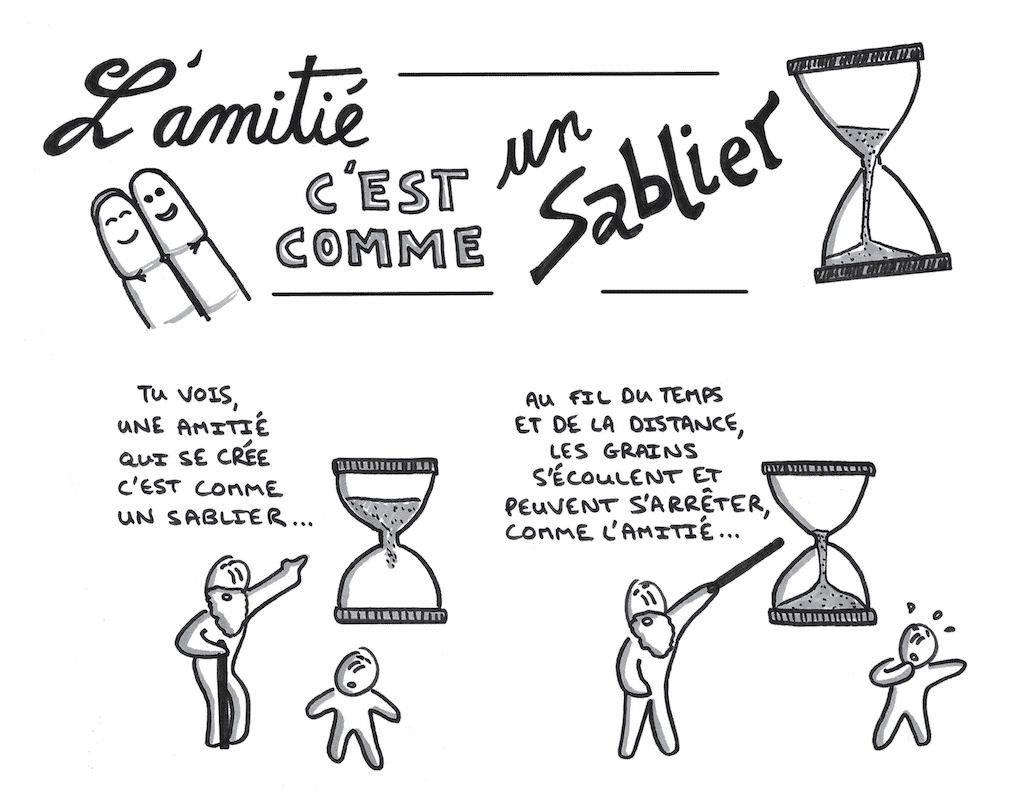 L'amitié
C'EST
COMME
un
Sablier
TU VOIS,
UNE AMITIÉ
QUI SE CRÉE
C'EST COMME
UN SABLIER...
AU FIL DU TEMPS
ET DE LA DISTANCE,
LES GRAINS
S'ÉCOULENT ET
PEUVENT S'ARRÊTER,
COMME L'AMITIÉ...